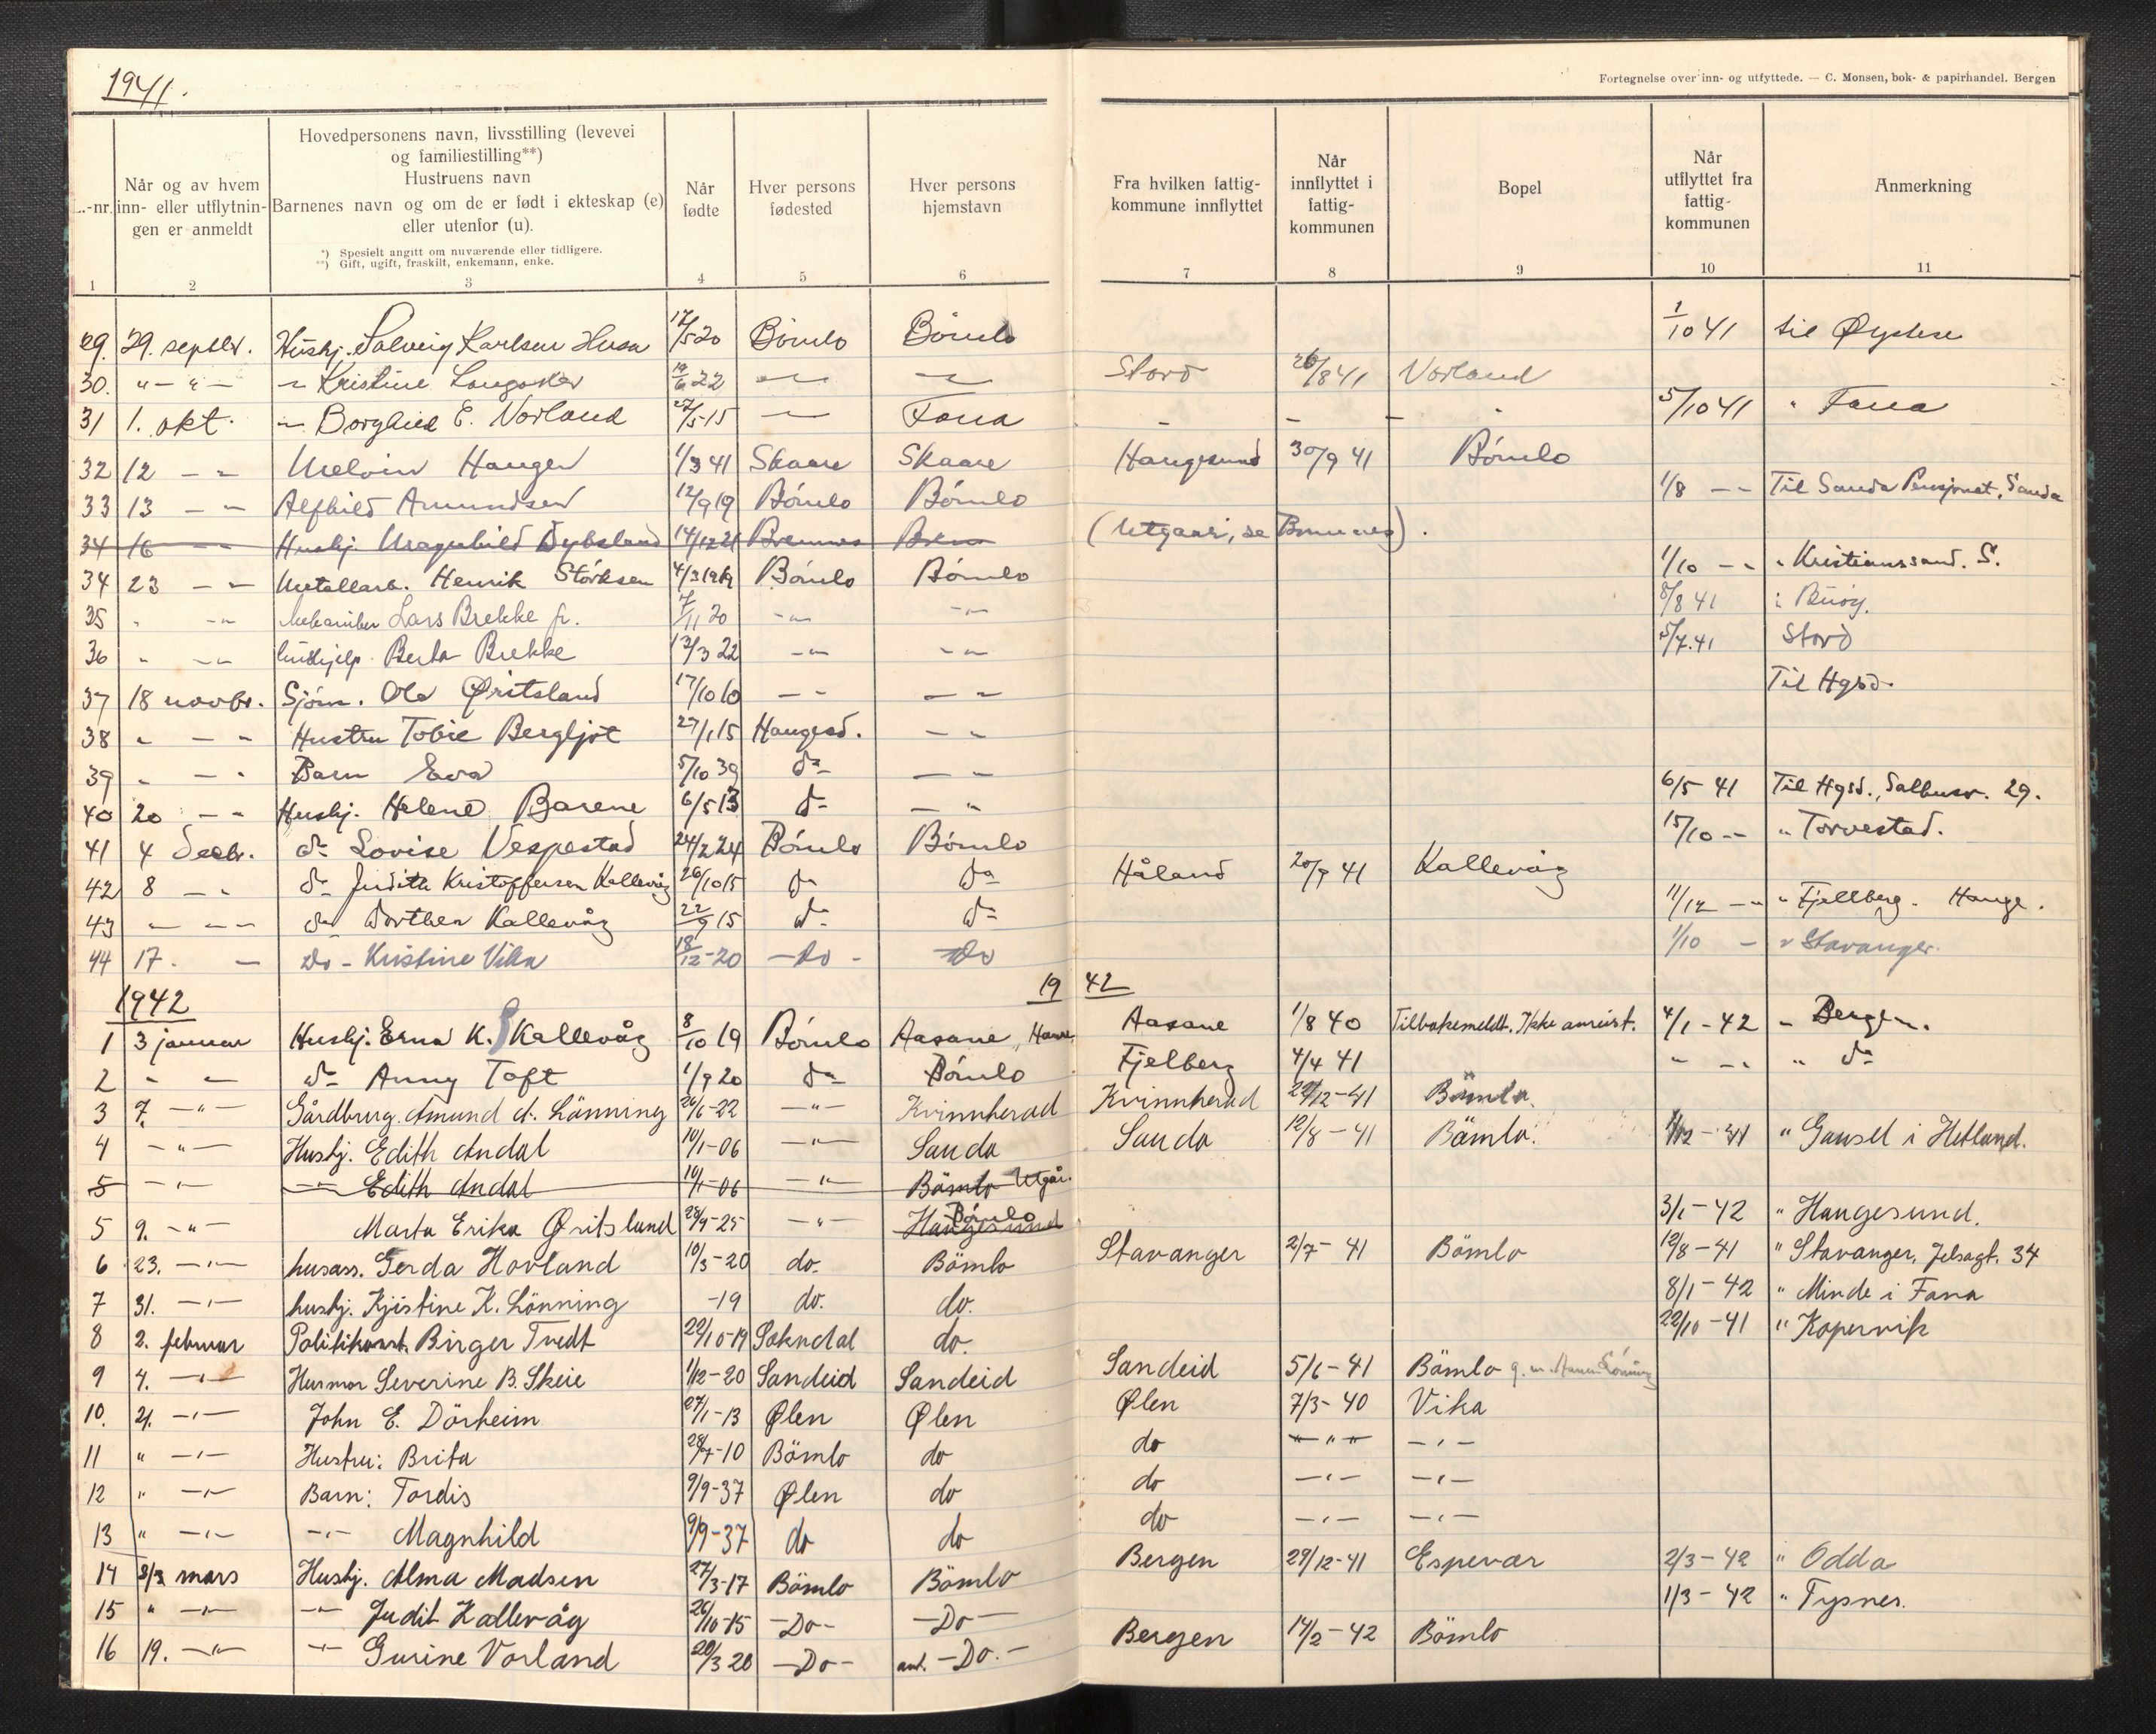 1941.
Fortegnelse over inn- og utflyttede. — C. Monsen, bok- & papirhandel. Bergen
L.-nr.
Når og av hvem inn- eller utflytningen er anmeldt
Hovedpersonens navn, livsstilling (levevei
og familiestilling**)
Hustruens navn
Barnenes navn og om de er født i ekteskap (e)
eller utenfor (u).
*) Spesielt angitt om nuværende eller tidligere.
**) Gift, ugift, fraskilt, enkemann, enke.
Når fødte
Hver persons fødested
Hver persons hjemstavn
Fra hvilken fattigkommune innflyttet
Når innflyttet i fattigkommunen
Bopel
Når utflyttet fra fattigkommunen
Anmerkning
1 2 3 4 5 6 7 8 9 10 11
29. 29. septbr. Hushj. Solveig Karlsen Husa 17/5 20 Bömlo Bömlo 1/10 41 til Øystese
30. " - " - - Kristine Langaker 19/6 22 - - Stord 26/8 41 Vorland
31 1. okt. - Borghild E. Vorland 27/5-15 - Fana - - - - 5/10 41 " Fana
32 12 - - Melvin Haugen 1/3 41 Skaare Skaare Haugesund 30/9 41 Bömlo
33 13 - - Alfhild Amundsen 12/9 19 Bömlo Bömlo 1/8 - - Til Sauda Pensjonat, Sauda
34 16 - - Hushj. Magnhild Dybsland 14/12 21 Bremnes Brem (Utgaar, se Bremnes).
34 23 - - Metallarb. Henrik Störksen 4/3 1919 Bömlo Bömlo 1/10 - - " Kristianssand. S.
35 " - " Mekaniker Lars Brekke jr. 7/11 20 - " - - " - 8/8 41 : Buöy.
36 " - " - hushjelp Berta Brekke 13/3 22 - " - - " - 5/7.41 Stord
37 18 novbr. Sjöm. Ola Øritsland 17/10 10 - - - - Til Hgsd.
38 " - " Hustru Tobie Bergljot 27/1 15 Haugesd. - -
39 " - " Barn Eva 5/10 39 do - -
40 20 - - Hushj. Helene Barene 6/5 13 do - " 6/5 41 Til Hgsd., Salhusv. 29.
41 4 decbr. do Lovise Vespestad 24/2 24 Bömlo Bömlo 15/10 - - " Torvestad.
42 8 - - do Judith Kristoffersen Kallevåg 26/10 15 do do Håland 20/9 41 Kallevåg
43 - - - do Dorthea Kallevåg 22/9 15 do do 11/12 - - " Fjellberg. Hauge.
44 17. - Do - Kristine Vika 18/12-20 - Do - Do 1/10 - " Stavanger.
1942 19 42
1 3 januar Hushj. Erna K. S Kallevåg 8/10 19 Bömlo Aasane, Aasane 1/8 40 Tilbakemeldt. Ikke anreist. 4/1-42 " Bergen.
2 - - do Anny Toft 1/9 20 do Bömlo Fjelberg 4/4 41 " - " " do
3 7. - " - Gårdbrug. Amund A. Lönning 26/6-22 - " - Kvinnherad Kvinnherad 29/12-41 Bömlo.
4 - " - Hushj. Edith Andal 10/1-06 - " - Sauda Sauda 12/8-41 Bömlo. 1/12-41 " Gausel i Hetland.
5 - " - - " - Edith Andal 10/1-06 - " - Bömlo Utgår.
5 9. - " - Marta Erika Øritsland 28/9-25 - " - Haugesund Bömlo 3/1-42 " Haugesund.
6 23. - " - husass. Gerda Hovland 10/3-20 do. Bömlo Stavanger 2/7-41 Bömlo 12/8-41 " Stavanger, Jelsagt. 34
7 31. - " - hushj. Kjistine K. Lönning -19 do. do. 8/1-42 " Minde i Fana
8 2. februar Politikonst. Birger Tvedt 22/10-19 Sokndal do. 22/10-41 " Kopervik
9 4. - " - Husmor Severine B. Skeie 1/12-20 Sandeid Sandeid Sandeid 5/6-41 Bömlo g. m. Lönning
10. 21. - " - John E. Dörheim 27/1-13 Ølen Ølen Ølen 7/3-40 Vika
11 " - " - Hustru: Brita 28/7-10 Bömlo do do " " " - " -
12 " - " - Barn: Tordis 9/9-37 Ølen do do - " - - " -
13 " - " - - " - Magnhild 9/9-37 do do do - " - - " -
14 3/3 mars Hushj. Alma Madsen 27/3-17 Bömlo Bömlo Bergen 29/12-41 Espevær 2/3-42 " Odda
15 " - " - - " - Judit Kallevåg 26/10-15 - Do - - Do - 1/3-42 " Tysnes.
16 19. - " - - " - Gurine Vorland 20/3 20 - Do - ant. - Do. - Bergen 14/2-42 Bömlo